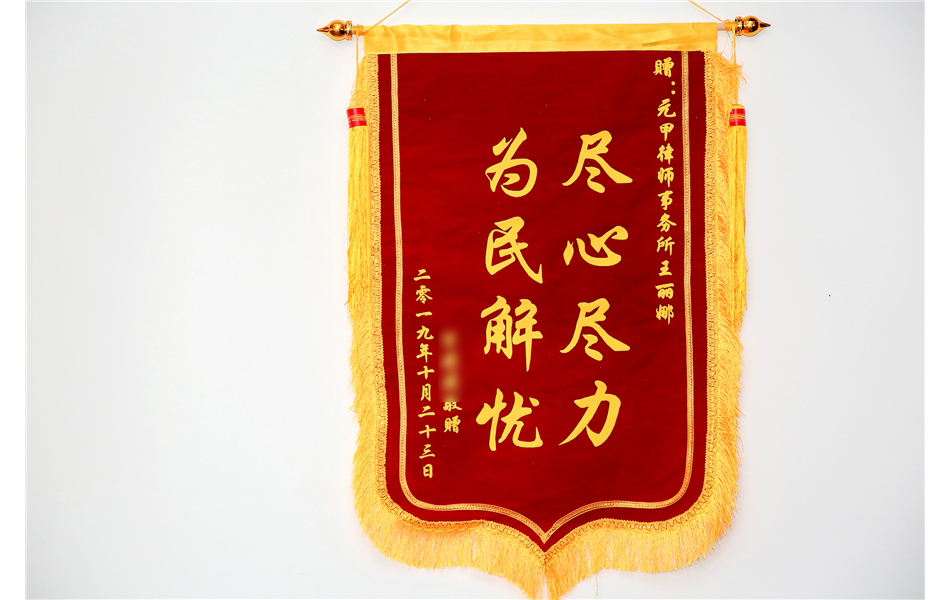 赠：元甲律师事务所王丽娜
尽心尽力
为民解忧
敬赠
二零一九年十月二十三日